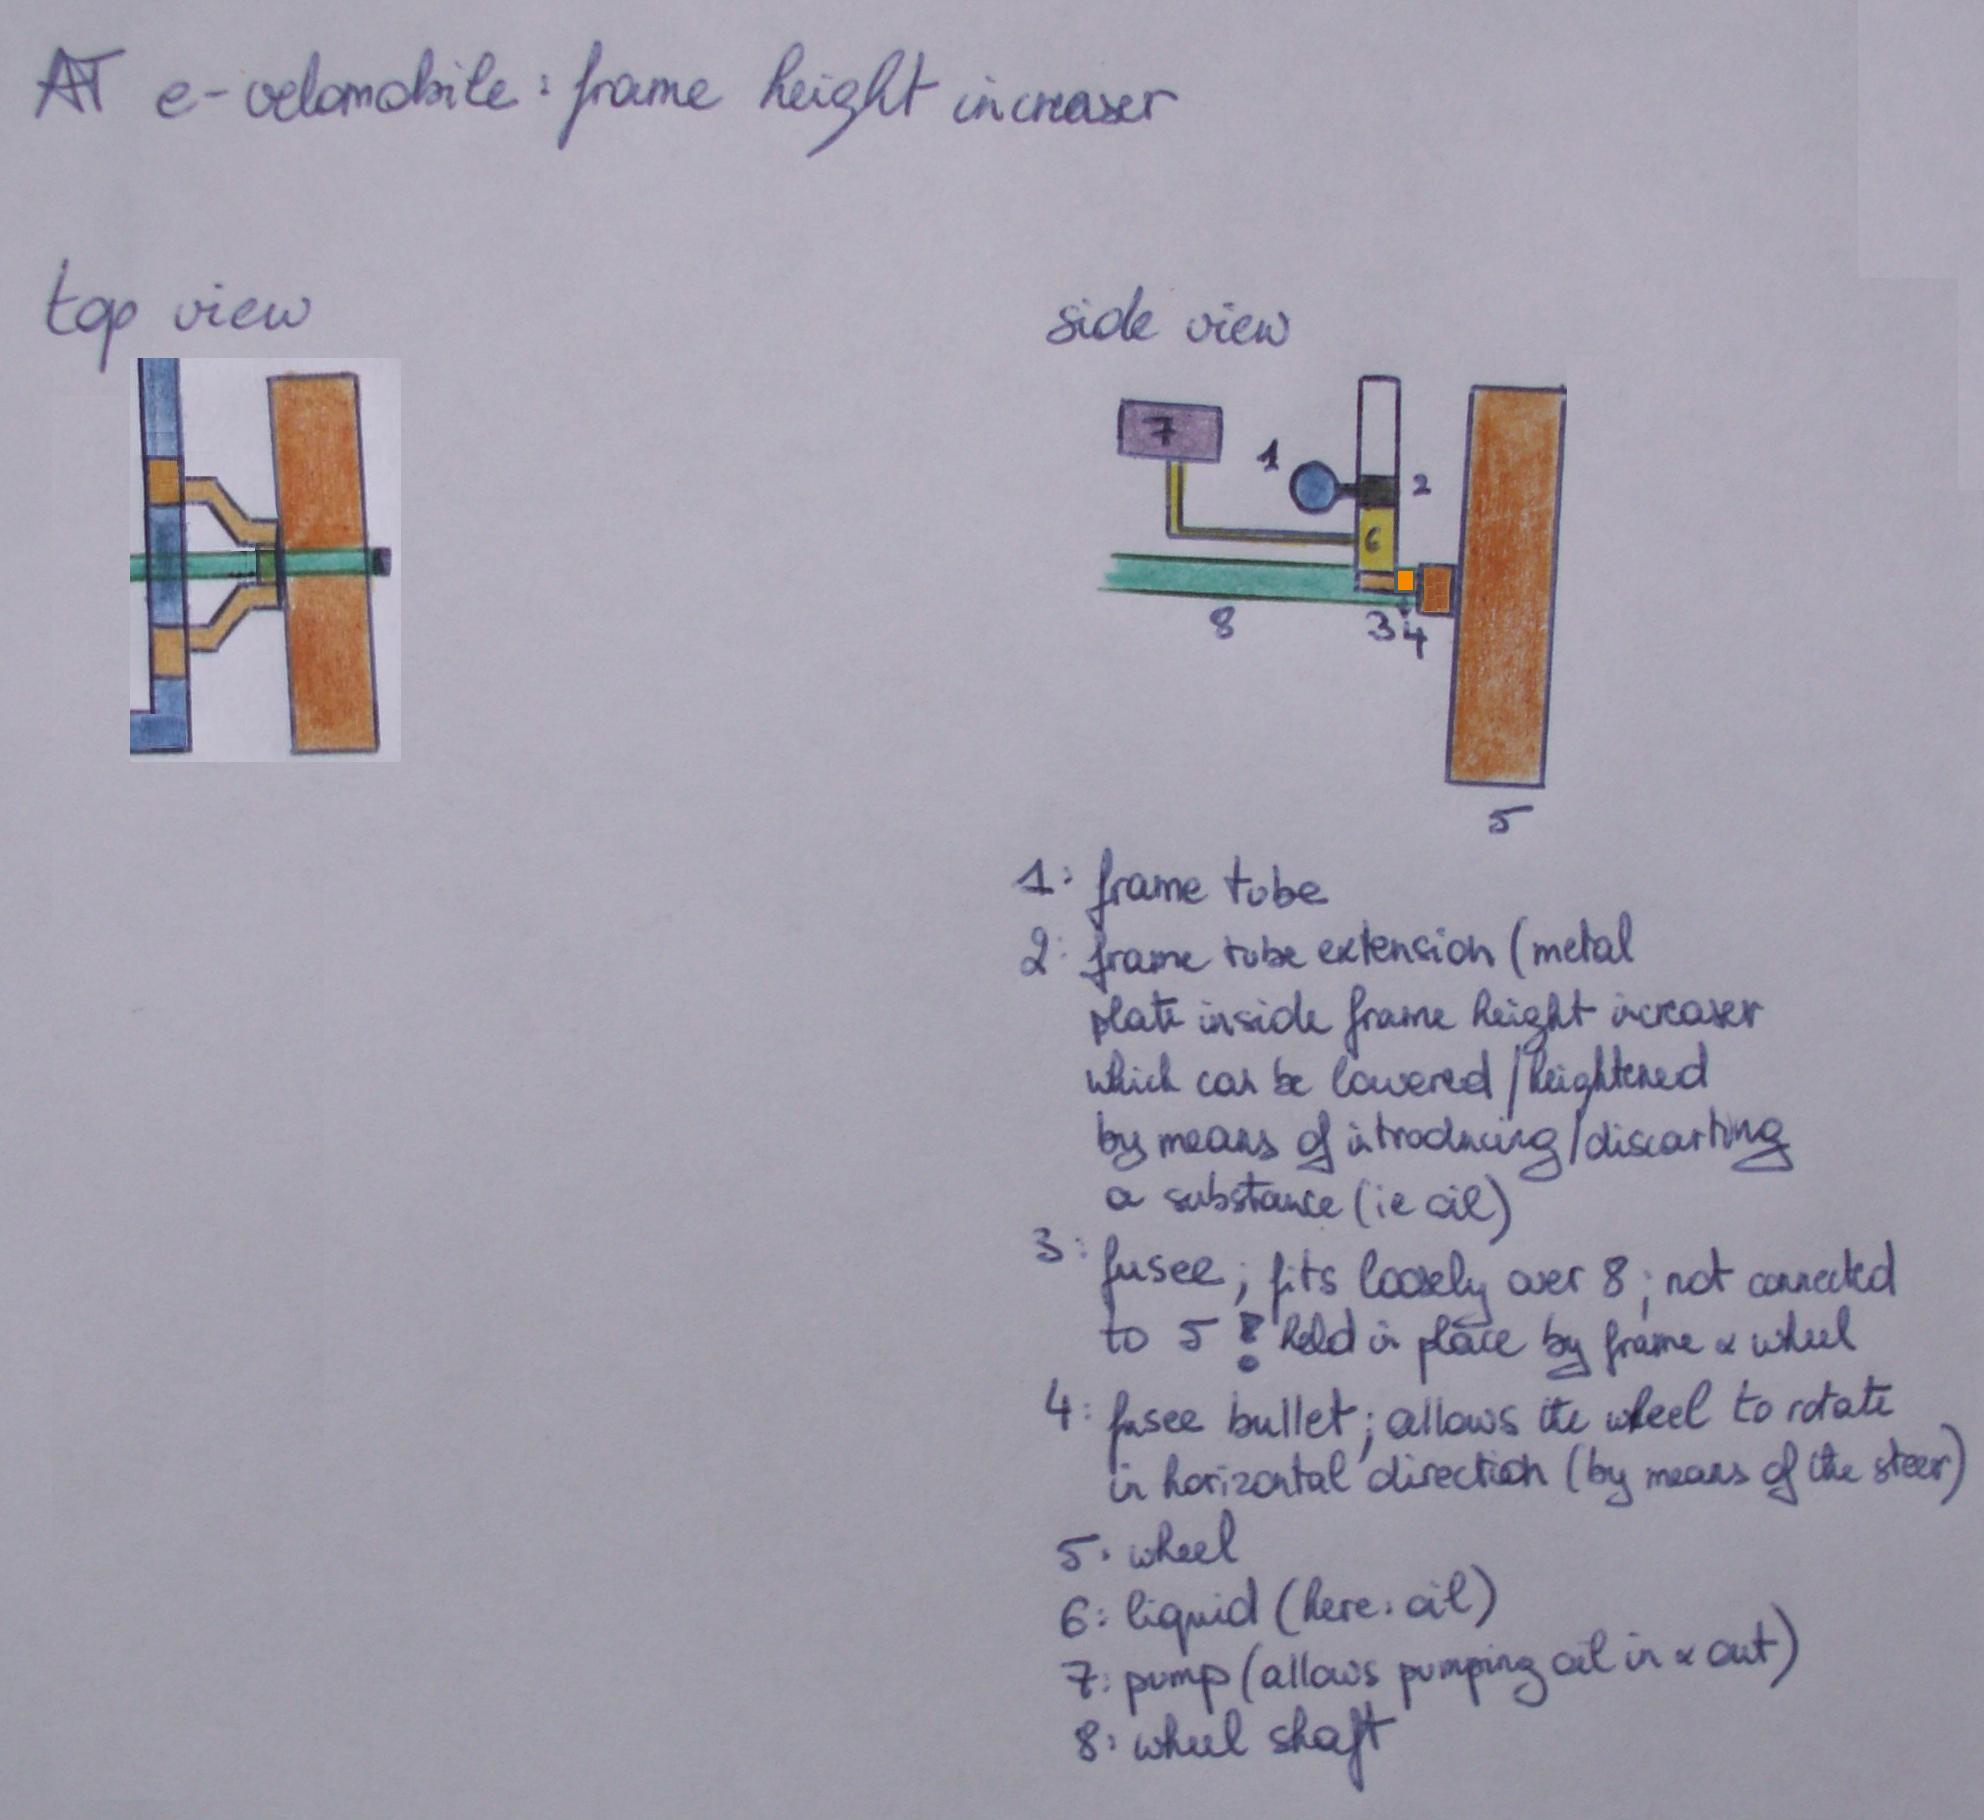 AT e-velomobile: frame height increaser
top view
side view
7
1
2
6
8
3
4
5
1: frame tube
2: frame tube extension (metal
plate inside frame height increaser
which can be lowered/heightened
by means of introducing/discarting
a substance (ie oil)
3: fusee; fits loosely over 8; not connected
to 5 ! held in place by frame & wheel
4: fusee bullet; allows the wheel to rotate
in horizontal direction (by means of the steer)
5: wheel
6: liquid (here: oil)
7: pump (allows pumping oil in & out)
8: wheel shaft